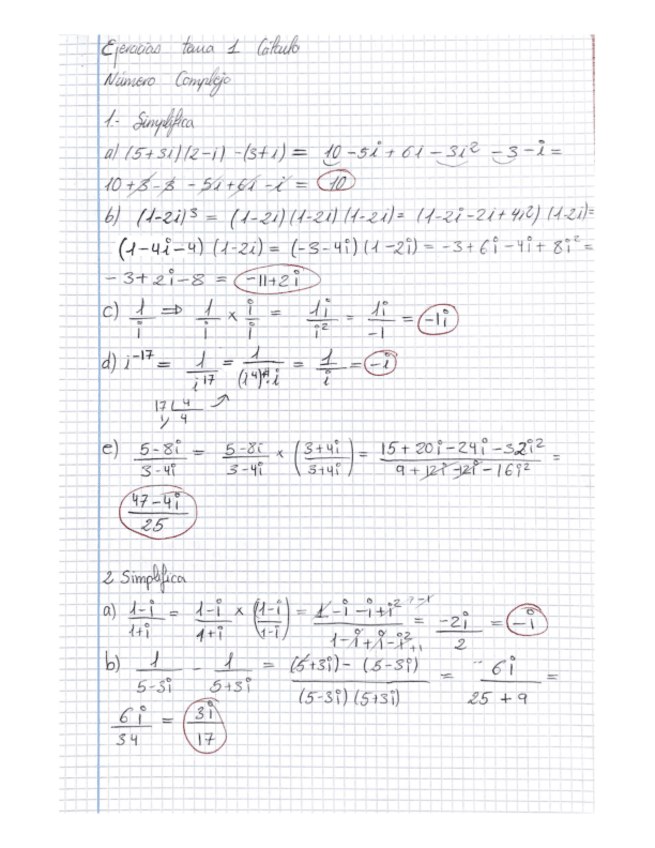 Ejercicios tema 1 Cálculo
Número Complejo
1.- Simplifica
a) (5+3i)(2-i) -(3+i) = 10-5i+6i-3i² -3-i =
10+3-3 -5i+6i-i = 10
b) (1-2i)³ = (1-2i)(1-2i)(1-2i)= (1-2i-2i+4i²)(1-2i)=
(1-4i-4)(1-2i) = (-3-4i)(1-2i) = -3+6i-4i+8i² =
-3+2i-8 = -11+2i
c) 1/i ⇒ 1/i × i/i = 1i/i² = 1i/-1 = -1i
d) i⁻¹⁷ = 1/i¹⁷ = 1/(i⁴)⁴·i = 1/i = -i
17 4
1 4
e) 5-8i/3-4i = 5-8i/3-4i × (3+4i/3+4i) = 15+20i-24i-32i²/9+12i-12i-16i² =
47-4i/25
2 Simplifica
a) 1-i/1+i = 1-i/1+i × (1-i/1-i) = 1-i-i+i²/1-i+i-i² = -2i/2 = -i
b) 1/5-3i - 1/5+3i = (5+3i)-(5-3i)/(5-3i)(5+3i) = 6i/25+9 =
6i/34 = 3i/17